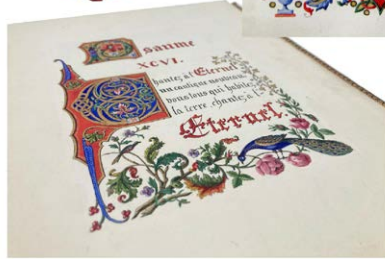 Psaume
XCVI.
Chantez, à l'Eternel
un cantique nouveau,
vous tous qui habitez
la terre chantez, à l'
Eternel.